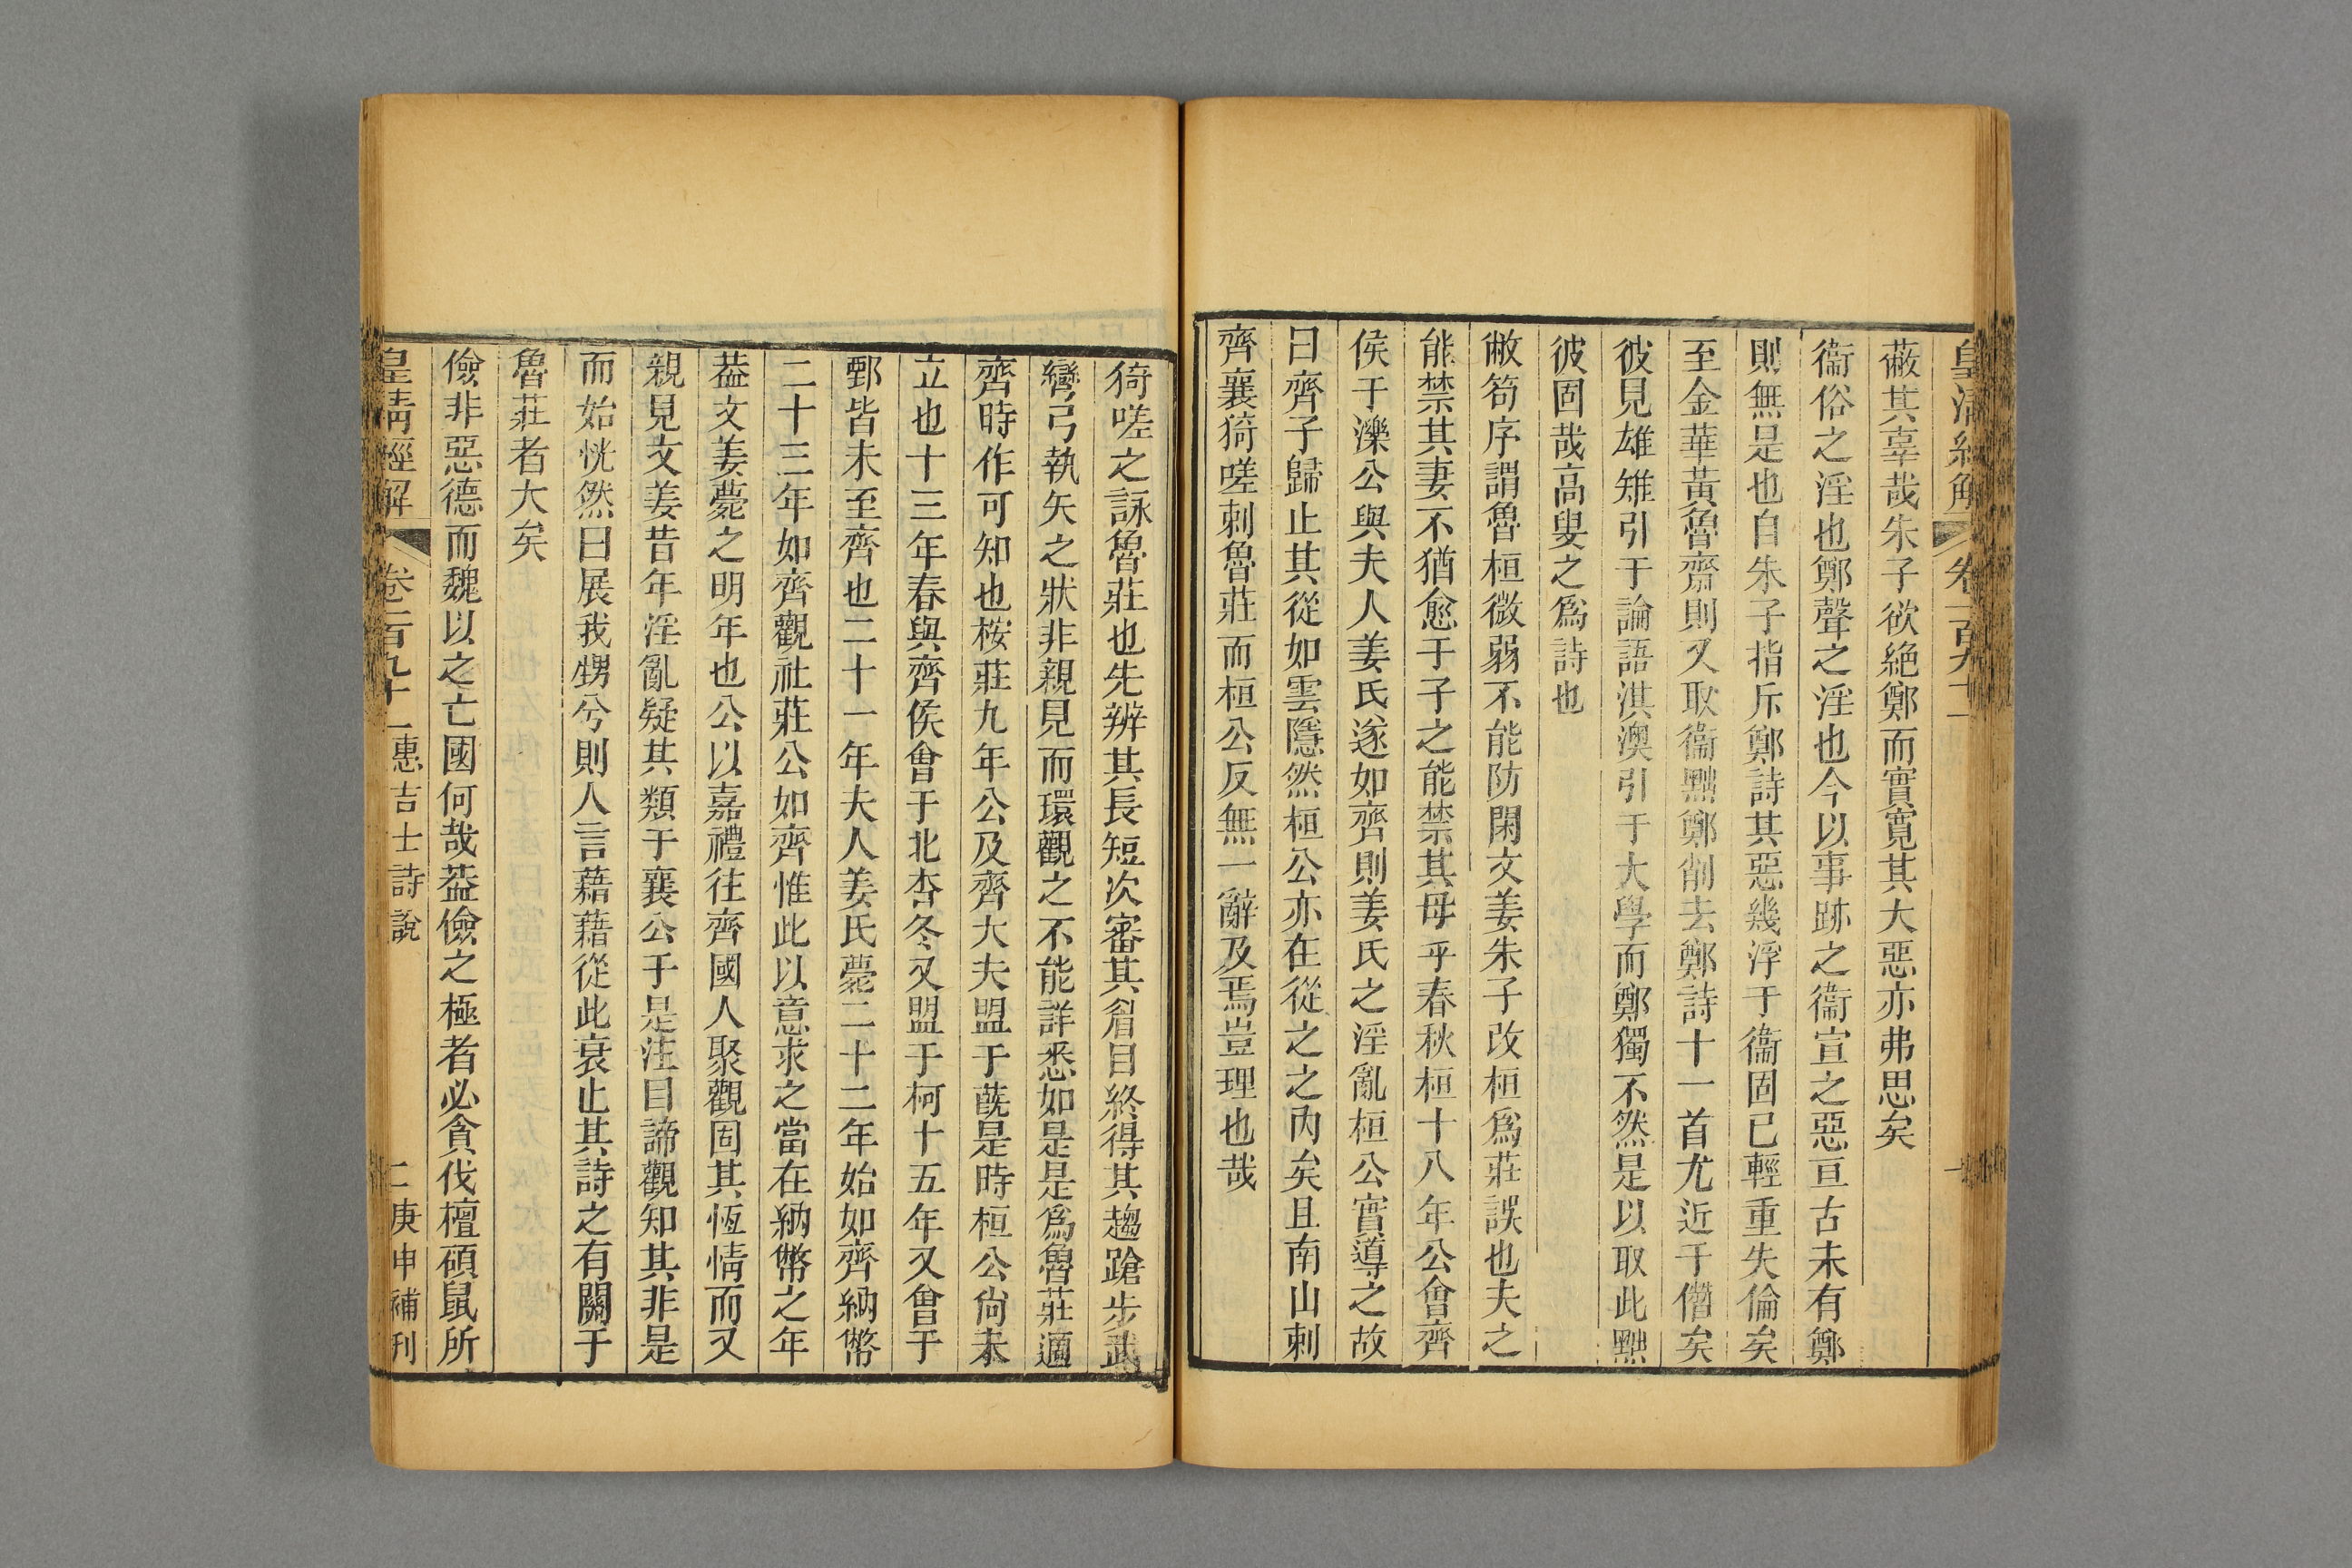 皇清經解 卷一百九十一
蔽其辜哉朱子欲絶鄭而實寬其大惡亦弗思矣
衞俗之淫也鄭聲之淫也今以事跡之衞宣之惡亘古未有鄭
則無是也自朱子指斥鄭詩其惡幾浮于衞固已輕重失倫矣
至金華黃魯齋則又取衞黜鄭削去鄭詩十一首尤近于僭矣
彼見雄雉引于論語淇澳引于大學而鄭獨不然是以取此黜
彼固哉高叟之爲詩也
敝笱序謂魯桓微弱不能防閑文姜朱子改桓爲莊誤也夫之
能禁其妻不猶愈于子之能禁其母乎春秋桓十八年公會齊
侯于濼公與夫人姜氏遂如齊則姜氏之淫亂桓公實導之故
曰齊子歸止其從如雲隱然桓公亦在從之之內矣且南山刺
齊襄猗嗟刺魯莊而桓公反無一辭及焉豈理也哉
猗嗟之詠魯莊也先辨其長短次審其眉目終得其趨蹌步武
彎弓執矢之狀非親見而環觀之不能詳悉如是是爲魯莊適
齊時作可知也桉莊九年公及齊大夫盟于蔇是時桓公尙未
立也十三年春與齊侯會于北杏冬又盟于柯十五年又會于
鄄皆未至齊也二十一年夫人姜氏薨二十二年始如齊納幣
二十三年如齊觀社莊公如齊惟此以意求之當在納幣之年
葢文姜薨之明年也公以嘉禮往齊國人聚觀固其恆情而又
親見文姜昔年淫亂疑其類于襄公于是注目諦觀知其非是
而始恍然曰展我甥兮則人言藉藉從此衰止其詩之有關于
魯莊者大矣
儉非惡德而魏以之亡國何哉葢儉之極者必貪伐檀碩鼠所
皇清經解 卷一百九十一惠吉士詩說 二庚申補刊